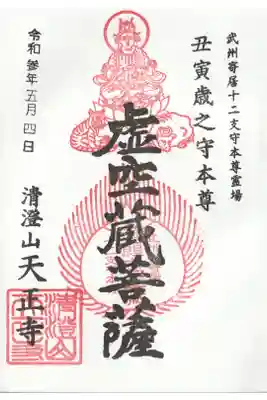 武州寄居十二支守本尊霊場
丑寅歳之守本尊
虚空蔵菩薩
令和参年五月四日
清澄山天正寺